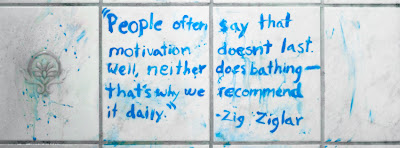 "People often say that
motivation doesnt last.
Well, neither does bathing—
that's why we recommend
it daily."
-Zig Ziglar